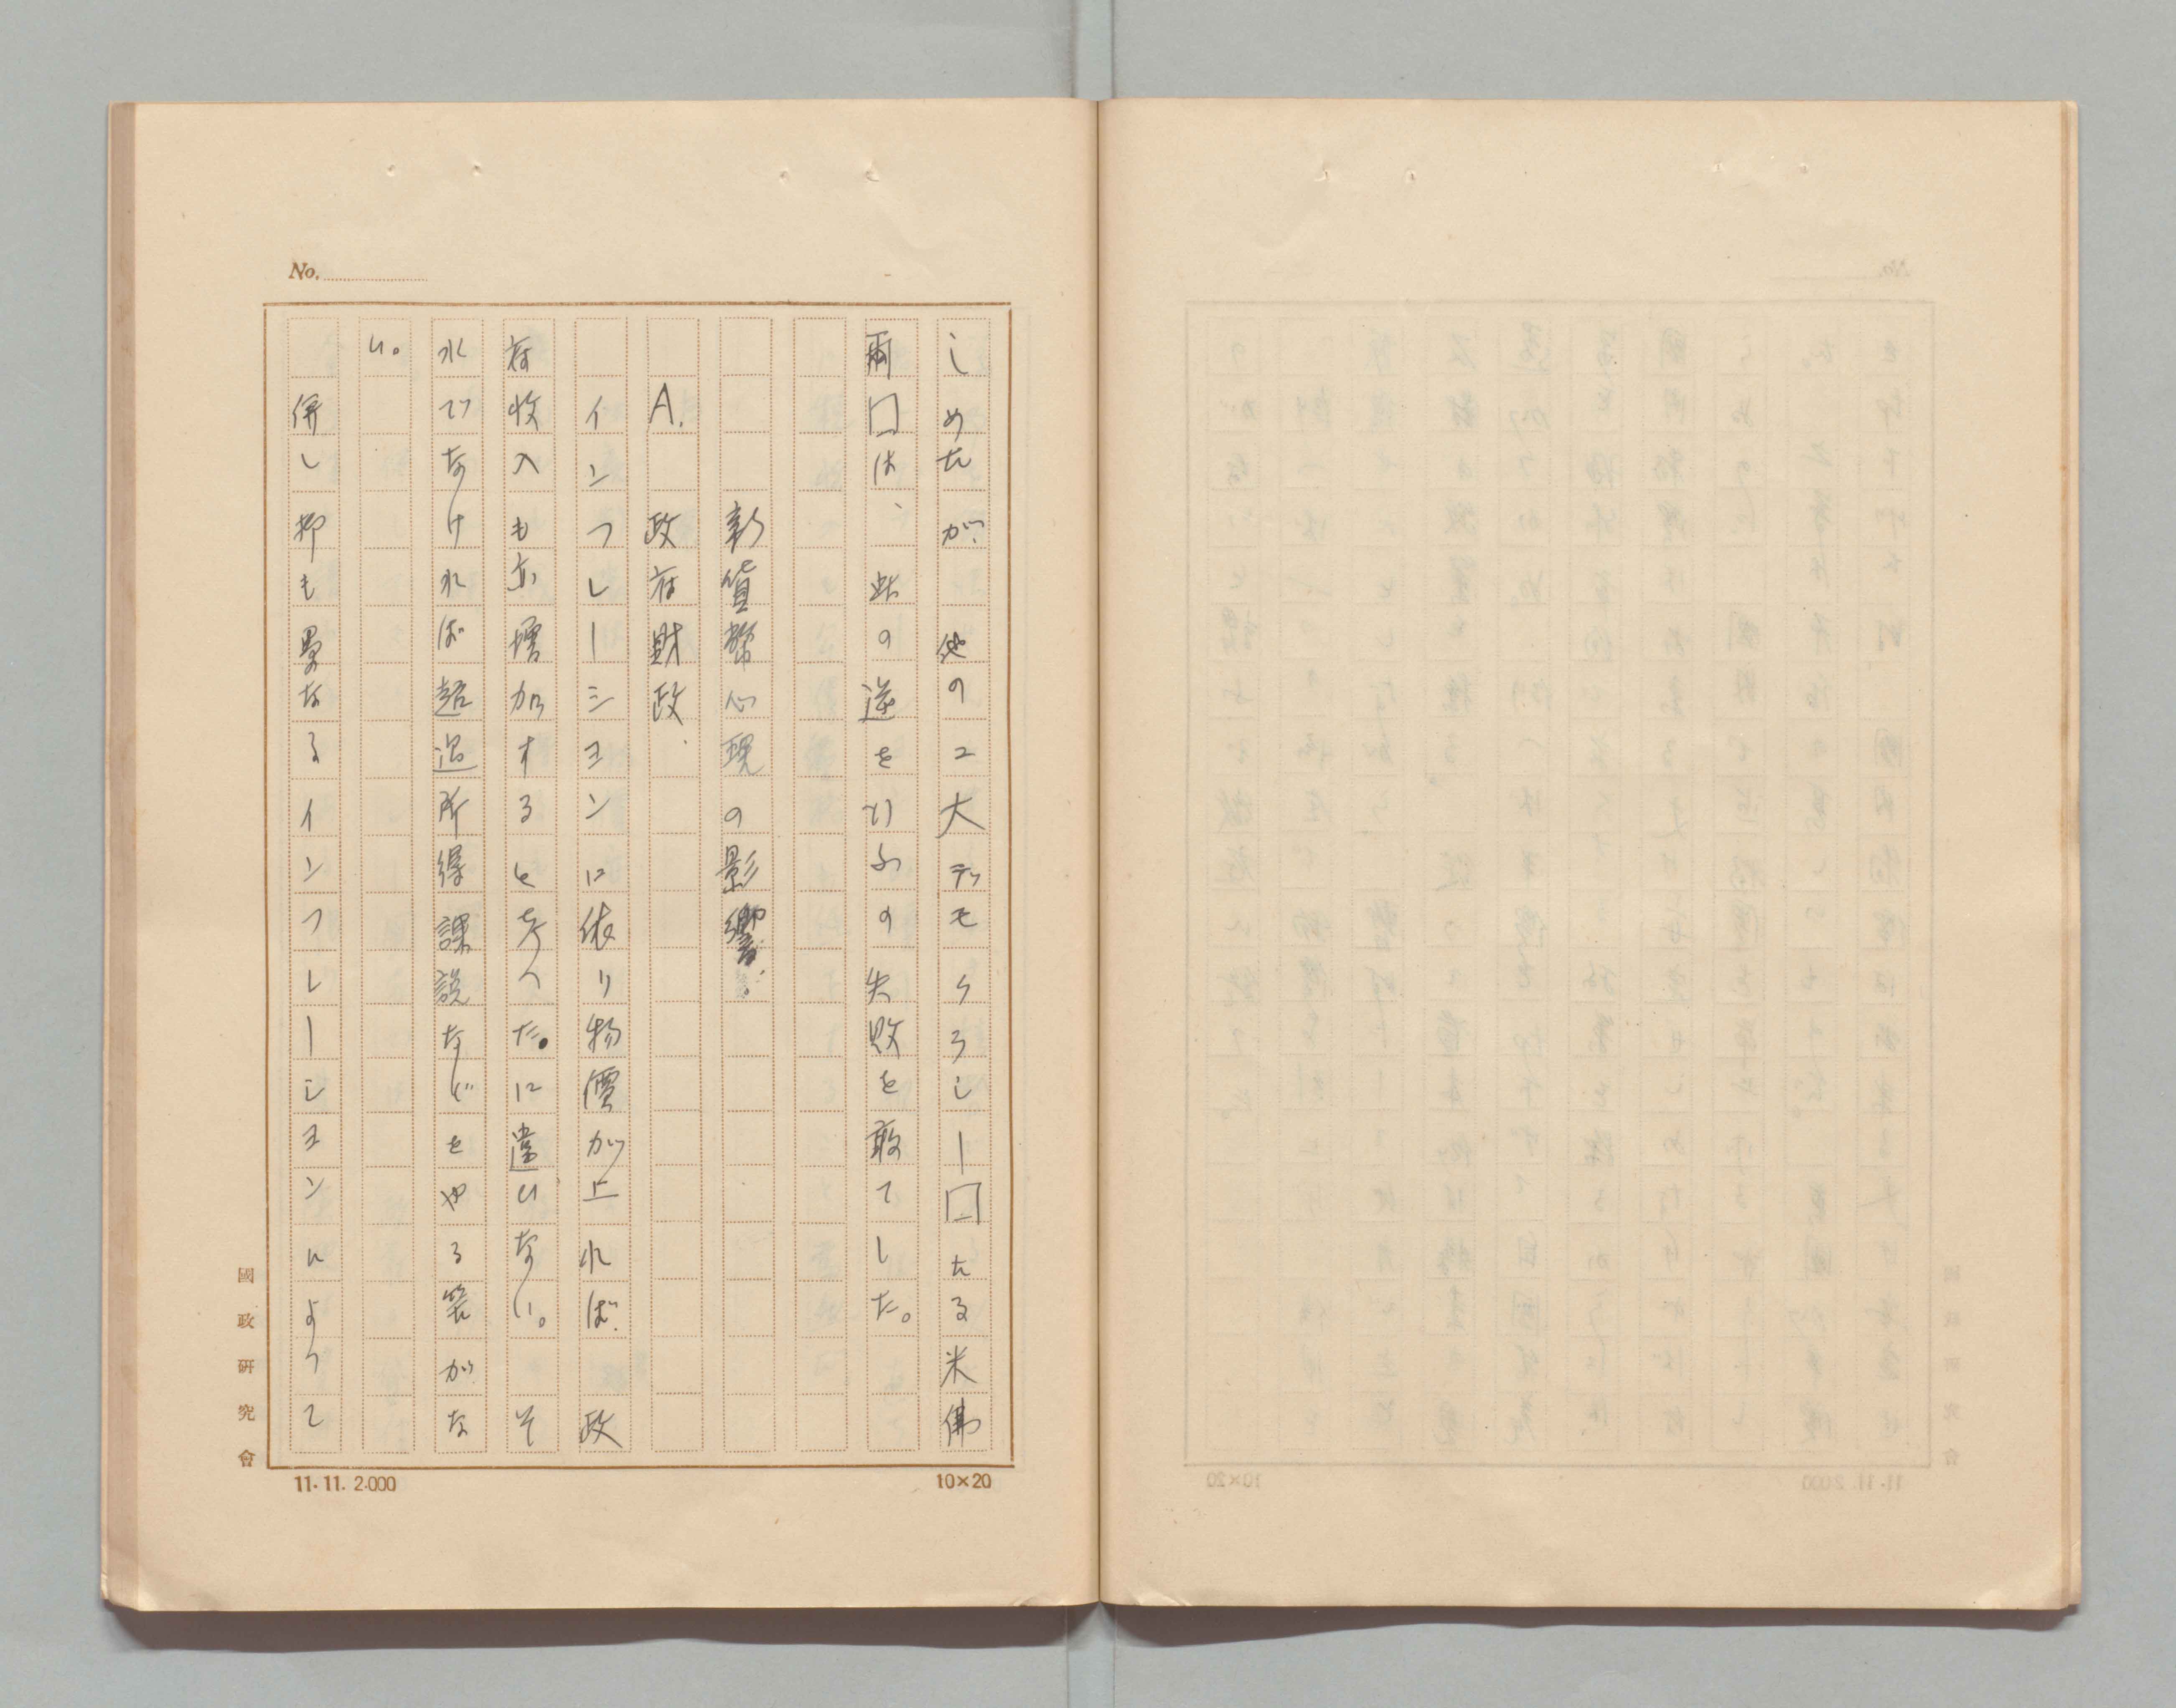 No.
しめたが 他の二大デモクラシー囗たる米佛
兩囗は、此の逆を行ふの失敗を敢てした。
新貨幣心現の影響.
A. 政府財政.
インフレーシヨンに依り物價が上れば 政
府收入も亦増加すると考へた。に違ひない。そ
れでなければ超過所得課説などをやる筈がな
い。
併し抑も單なるインフレーシヨンによつて
國政研究會
11.11. 2.000
10×20